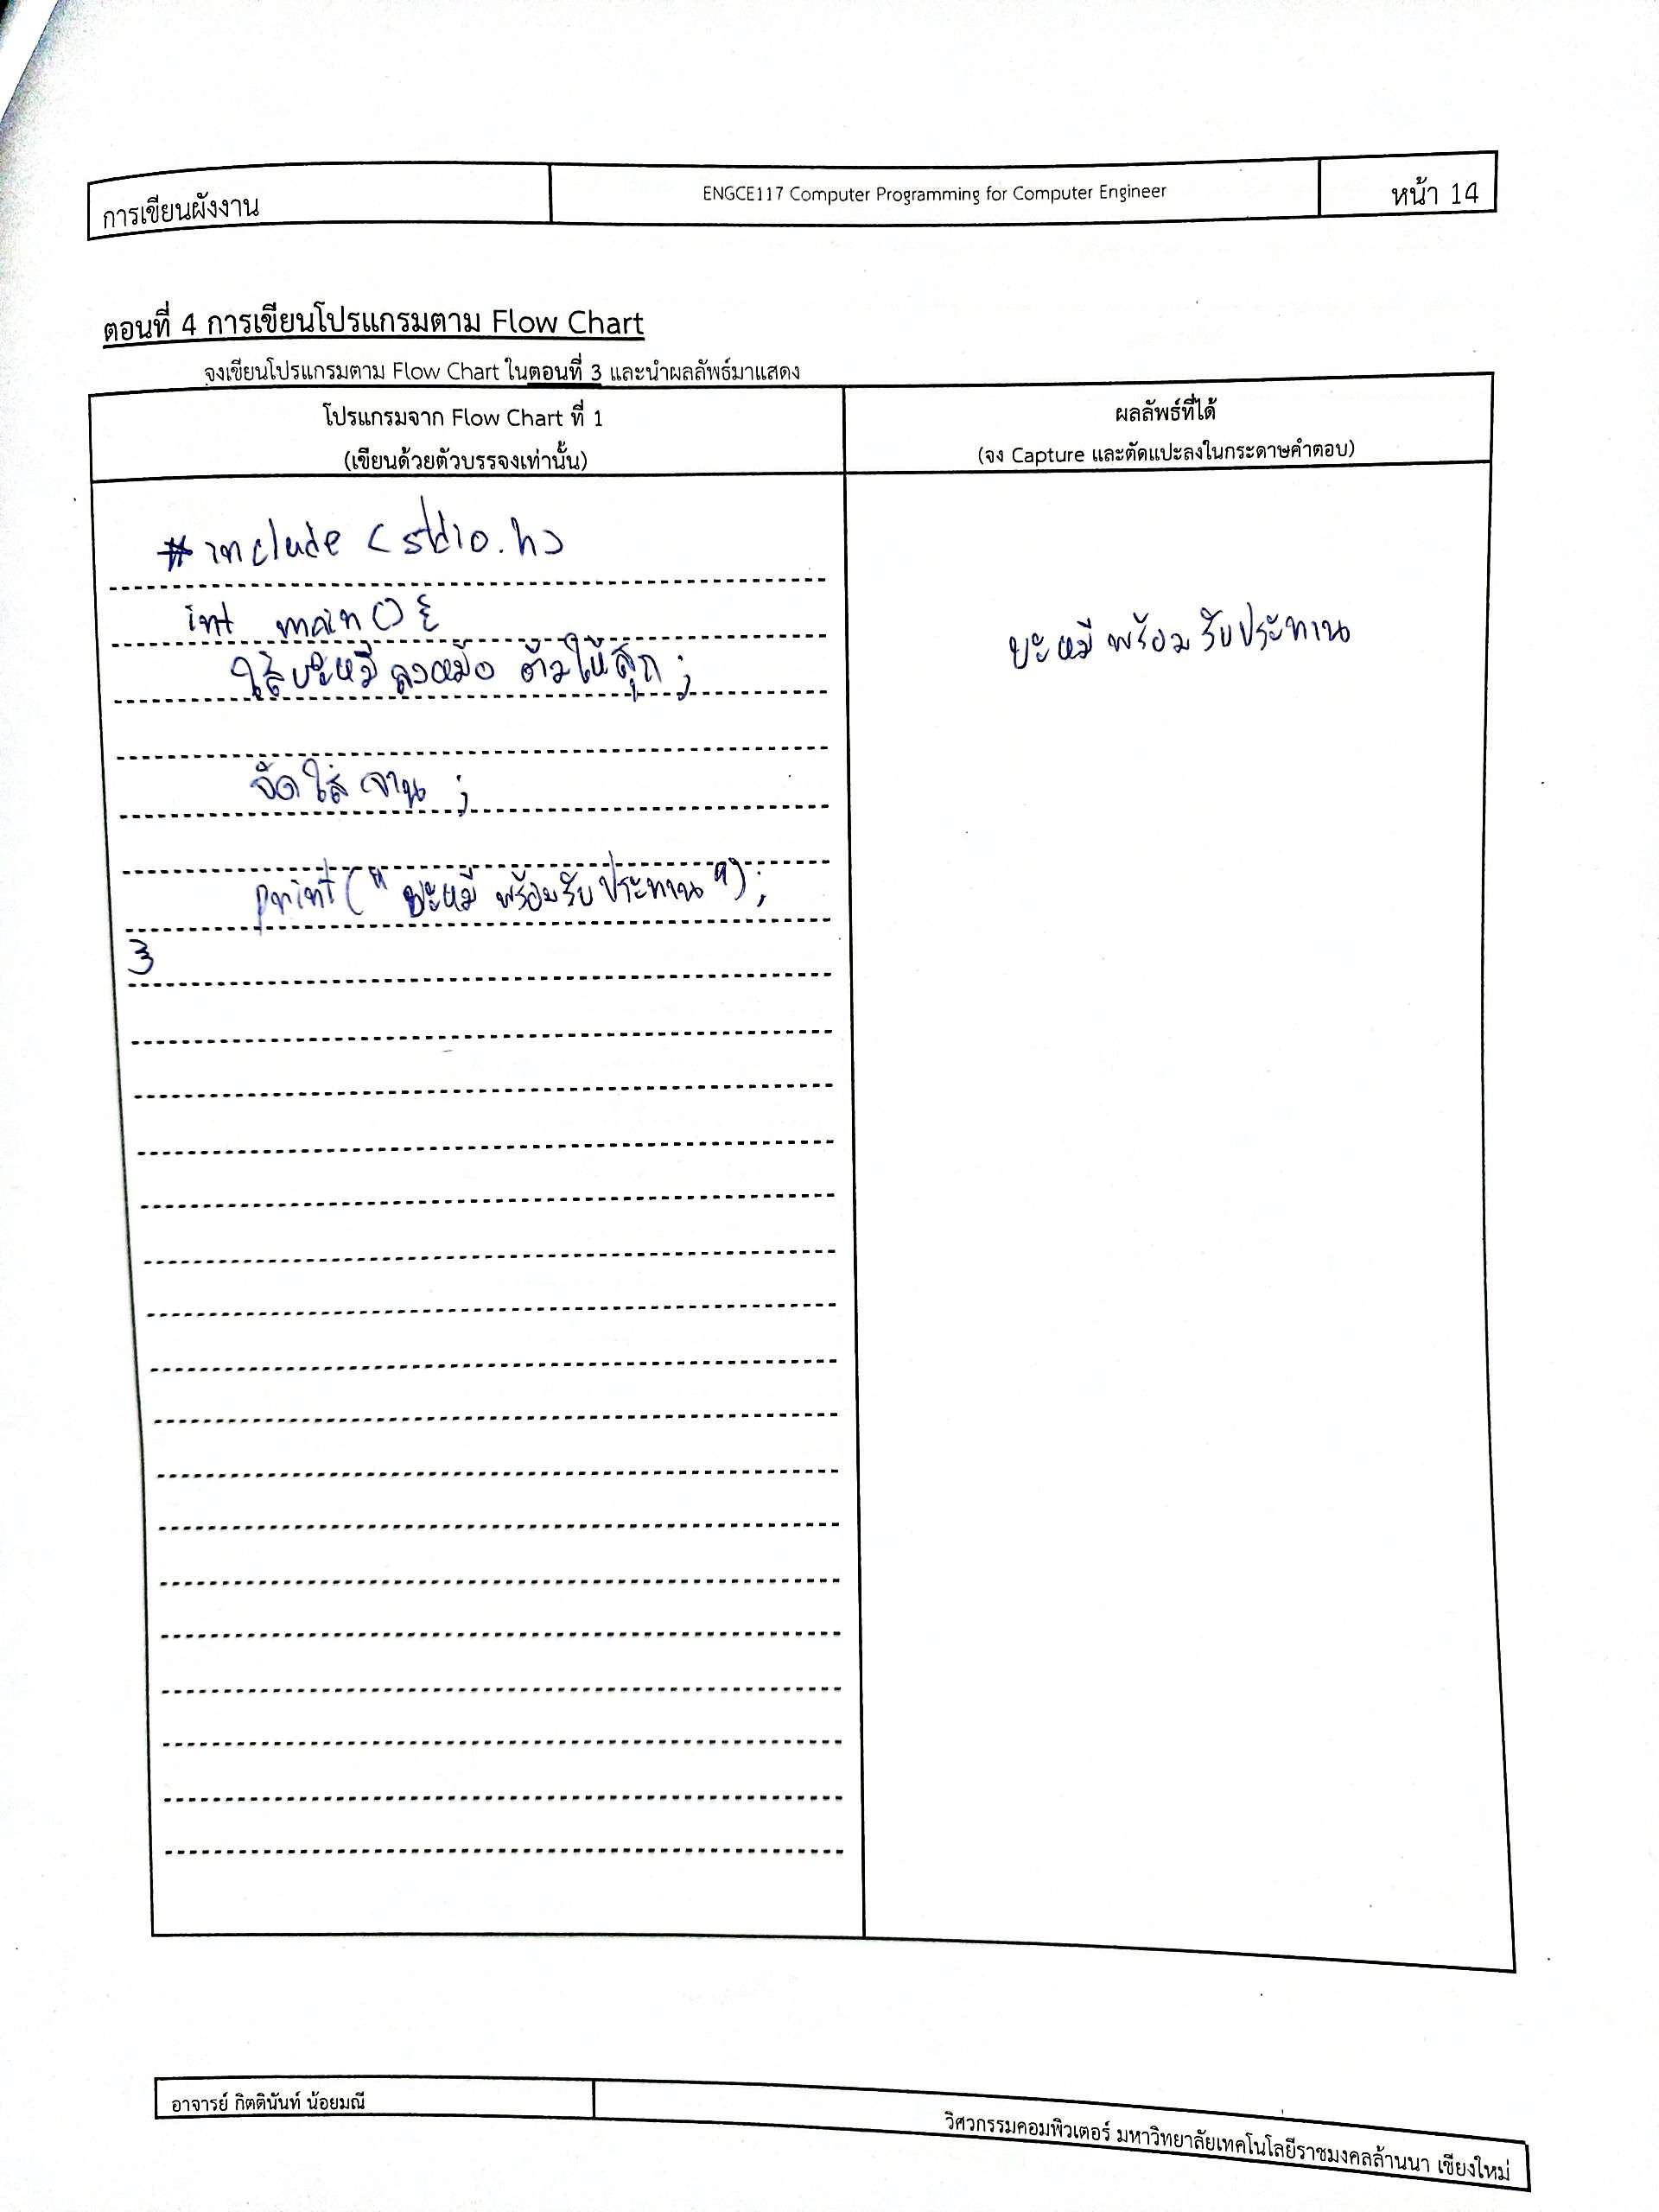 การเขียนผังงาน
ENGCE117 Computer Programming for Computer Engineer
หน้า 14
ตอนที่ 4 การเขียนโปรแกรมตาม Flow Chart
จงเขียนโปรแกรมตาม Flow Chart ในตอนที่ 3 และนำผลลัพธ์มาแสดง
โปรแกรมจาก Flow Chart ที่ 1
(เขียนด้วยตัวบรรจงเท่านั้น)
ผลลัพธ์ที่ได้
(จง Capture และตัดแปะลงในกระดาษคำตอบ)
#include <stdio.h>
int main(){
ใส่บะหมี่ลงหม้อ ต้มให้สุก;
จัดใส่จาน;
print("บะหมี่ พร้อมรับประทาน");
}
บะหมี่ พร้อมรับประทาน
อาจารย์ กิตตินันท์ น้อยมณี
วิศวกรรมคอมพิวเตอร์ มหาวิทยาลัยเทคโนโลยีราชมงคลล้านนา เชียงใหม่